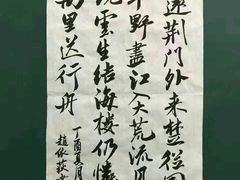 遠荆門外来楚從國
平野盡江入大荒流月
鏡雲生结海樓仍憐
萬里送行舟
丁酉夏月
趙依荻